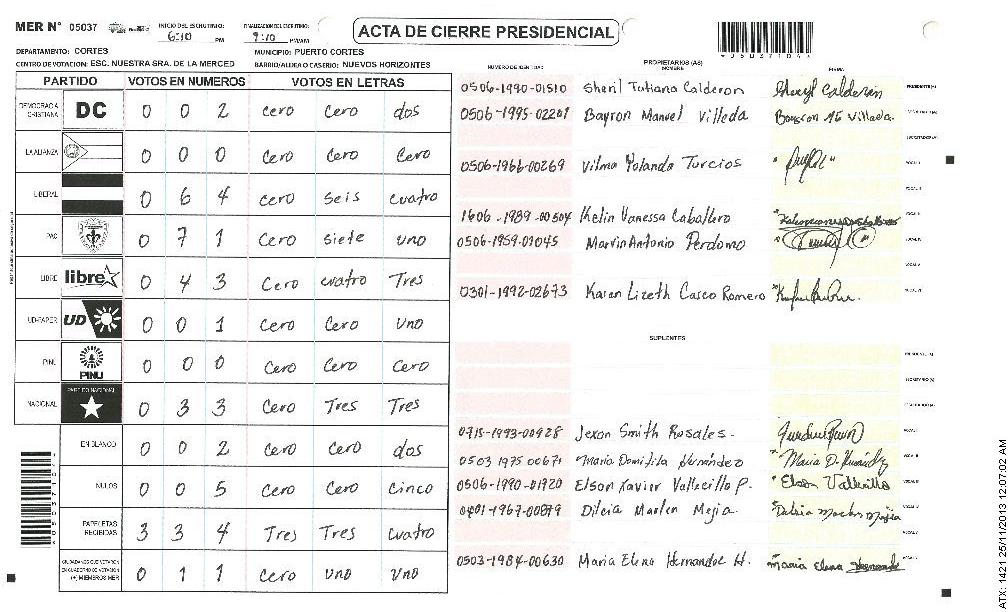 MER N° 05037 INICIO DEL ESCRUTINIO: 6:10 PM FINALIZACION DEL ESCRUTINIO: 9:10 PM/AM
ACTA DE CIERRE PRESIDENCIAL
DEPARTAMENTO: CORTES MUNICIPIO: PUERTO CORTES
CENTRO DE VOTACION: ESC. NUESTRA SRA. DE LA MERCED BARRIO/ALDEA O CASERIO: NUEVOS HORIZONTES
PARTIDO VOTOS EN NUMEROS VOTOS EN LETRAS
DEMOCRACIA CRISTIANA DC 0 0 2 Cero Cero dos
LA ALIANZA 0 0 0 Cero Cero Cero
LIBERAL 0 6 4 Cero Seis Cuatro
PAC 0 7 1 Cero Siete Uno
LIBRE libre 0 4 3 Cero Cuatro Tres
UD-FAPER UD 0 0 1 Cero Cero Uno
PINU PINU 0 0 0 Cero Cero Cero
NACIONAL PARTIDO NACIONAL 0 3 3 Cero Tres Tres
EN BLANCO 0 0 2 Cero Cero dos
NULOS 0 0 5 Cero Cero Cinco
PAPELETAS RECIBIDAS 3 3 4 Tres Tres Cuatro
CIUDADANOS QUE VOTARON EN CUADERNO DE VOTACION (+) MIEMBROS MER 0 1 1 Cero Uno Uno
NUMERO DE IDENTIDAD PROPIETARIOS (AS) NOMBRE FIRMA
0506-1990-01510 Sheril Tatiana Calderon Sheryl Calderon
0506-1995-02201 Bayron Manuel Villeda
0506-1966-00269 Vilma Yolanda Turcios
1606-1989-00504 Kelin Vanessa Caballero
0506-1959-01045 Marvin Antonio Perdomo
0301-1992-02673 Karen Lizeth Casco Romero
SUPLENTES
0715-1993-00928 Jexon Smith Rosales.
0503 1975 00671 Maria Domitila Hernández Maria D. Hernández
0506-1990-01920 Elson Xavier Vallecillo P. Elson Vallecillo
0401-1967-00879 Dilcia Marlen Mejia
0503-1984-00630 Maria Elena Hernandez H. Maria Elena Hernandez
05037104
ATX: 1421 25/11/2013 12:07:02 AM